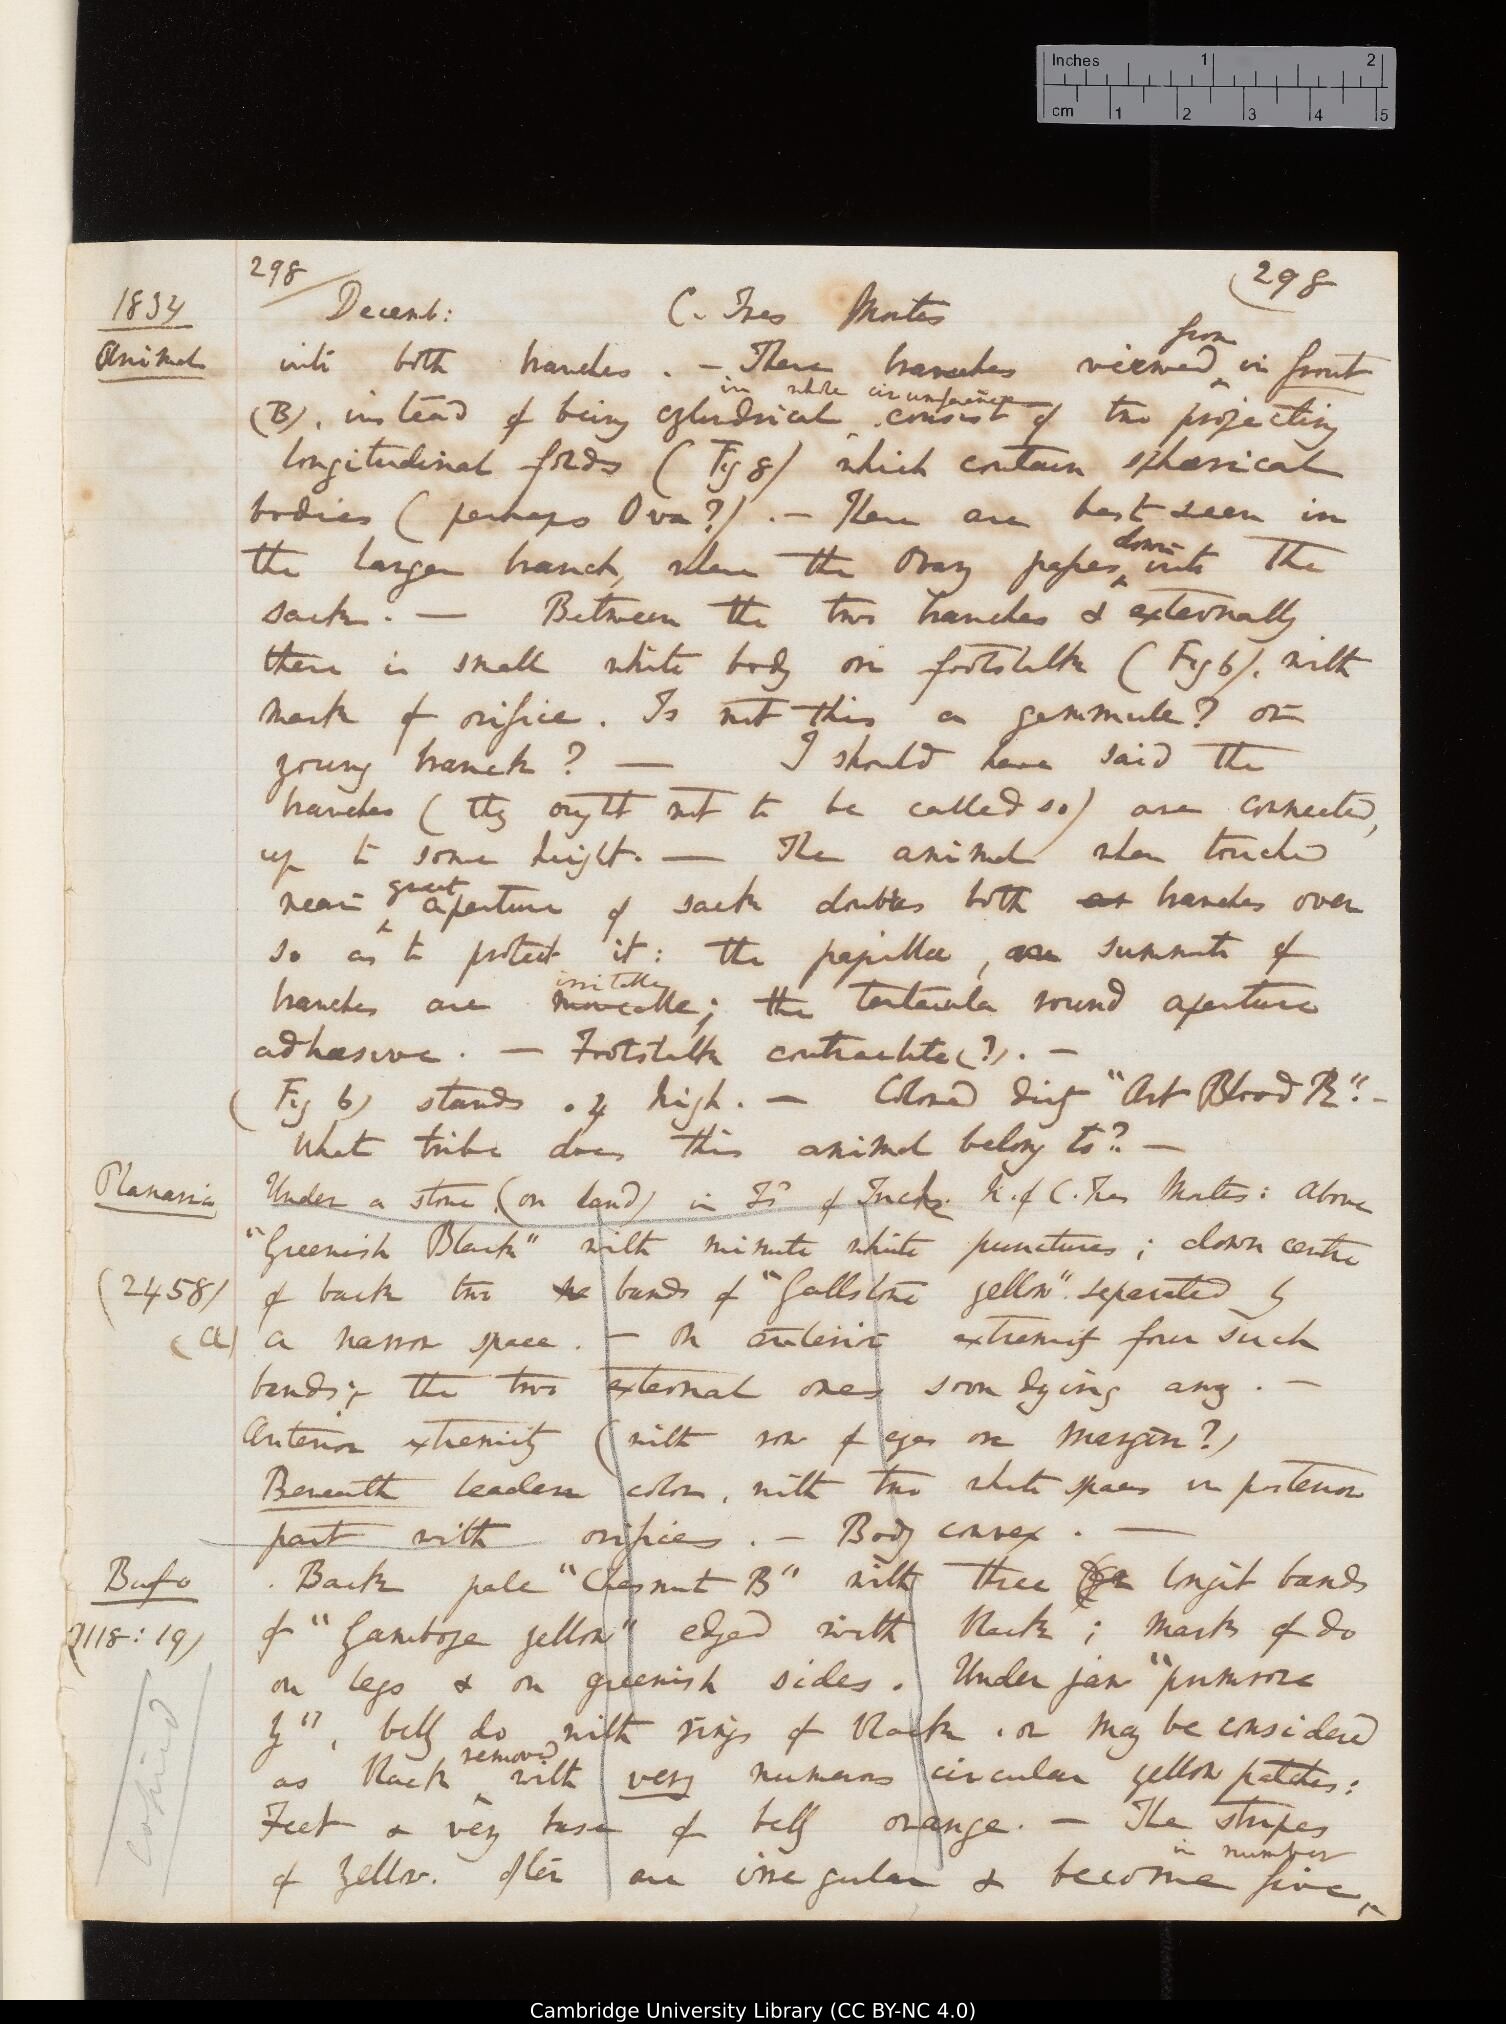 Inches 1 2
cm 1 2 3 4 5
298
298
1834
Decemb: C. Tres Montes
Animal
into both branches. — These branches viewed from in front
(B), instead of being cylindrical in whole circumference consist of two projecting
longitudinal folds (Fig 8) which contain sphærical
bodies (perhaps Ova?). — These are best seen in
the larger branch, where the Ovary passes down into the
sack. — Between the two branches & externally
there is small white body on footstalk (Fig 6), with
mark of orifice. Is not this a gemmule? or
young branch? — I should have said the
branches (they ought not to be called so) are connected,
up to some height. — The animal when touched
near great aperture of sack doubles both branches over
so as to protect it: the papillæ, summits of
branches are moveable irritable; the tentacula round aperture
adhæsive. — Footstalk contractile (?). —
(Fig 6) stands .4 high. — Colored dirty "Art Blood R". —
What tribe does this animal belong to? —
Planaria
Under a stone (on land) in Isd of Inche. N. of C. Tres Montes: above
"Greenish Black" with minute white punctures; down centre
(2458)
of back two bands of "Gallstone yellow" separated by
(a)
a narrow space. — On anterior extremity four such
bands; the two external ones soon dying away. —
Anterior extremity (with row of eyes on margin?)
Beneath leaden color, with two white spaces in posterior
part with orifices. — Body convex. —
Bufo
Back pale "Chesnut B" with three longit bands
(1118: 19)
of "Gamboge yellow" edged with black; marks of do
on legs & on greenish sides. Under jaw "primrose
Y", belly do with rings of black, or may be considered
as black removed with very numerous circular yellow patches:
copied
Feet & very base of belly orange. — The stripes
of yellow. often are irregular & become five in number
Cambridge University Library (CC BY-NC 4.0)